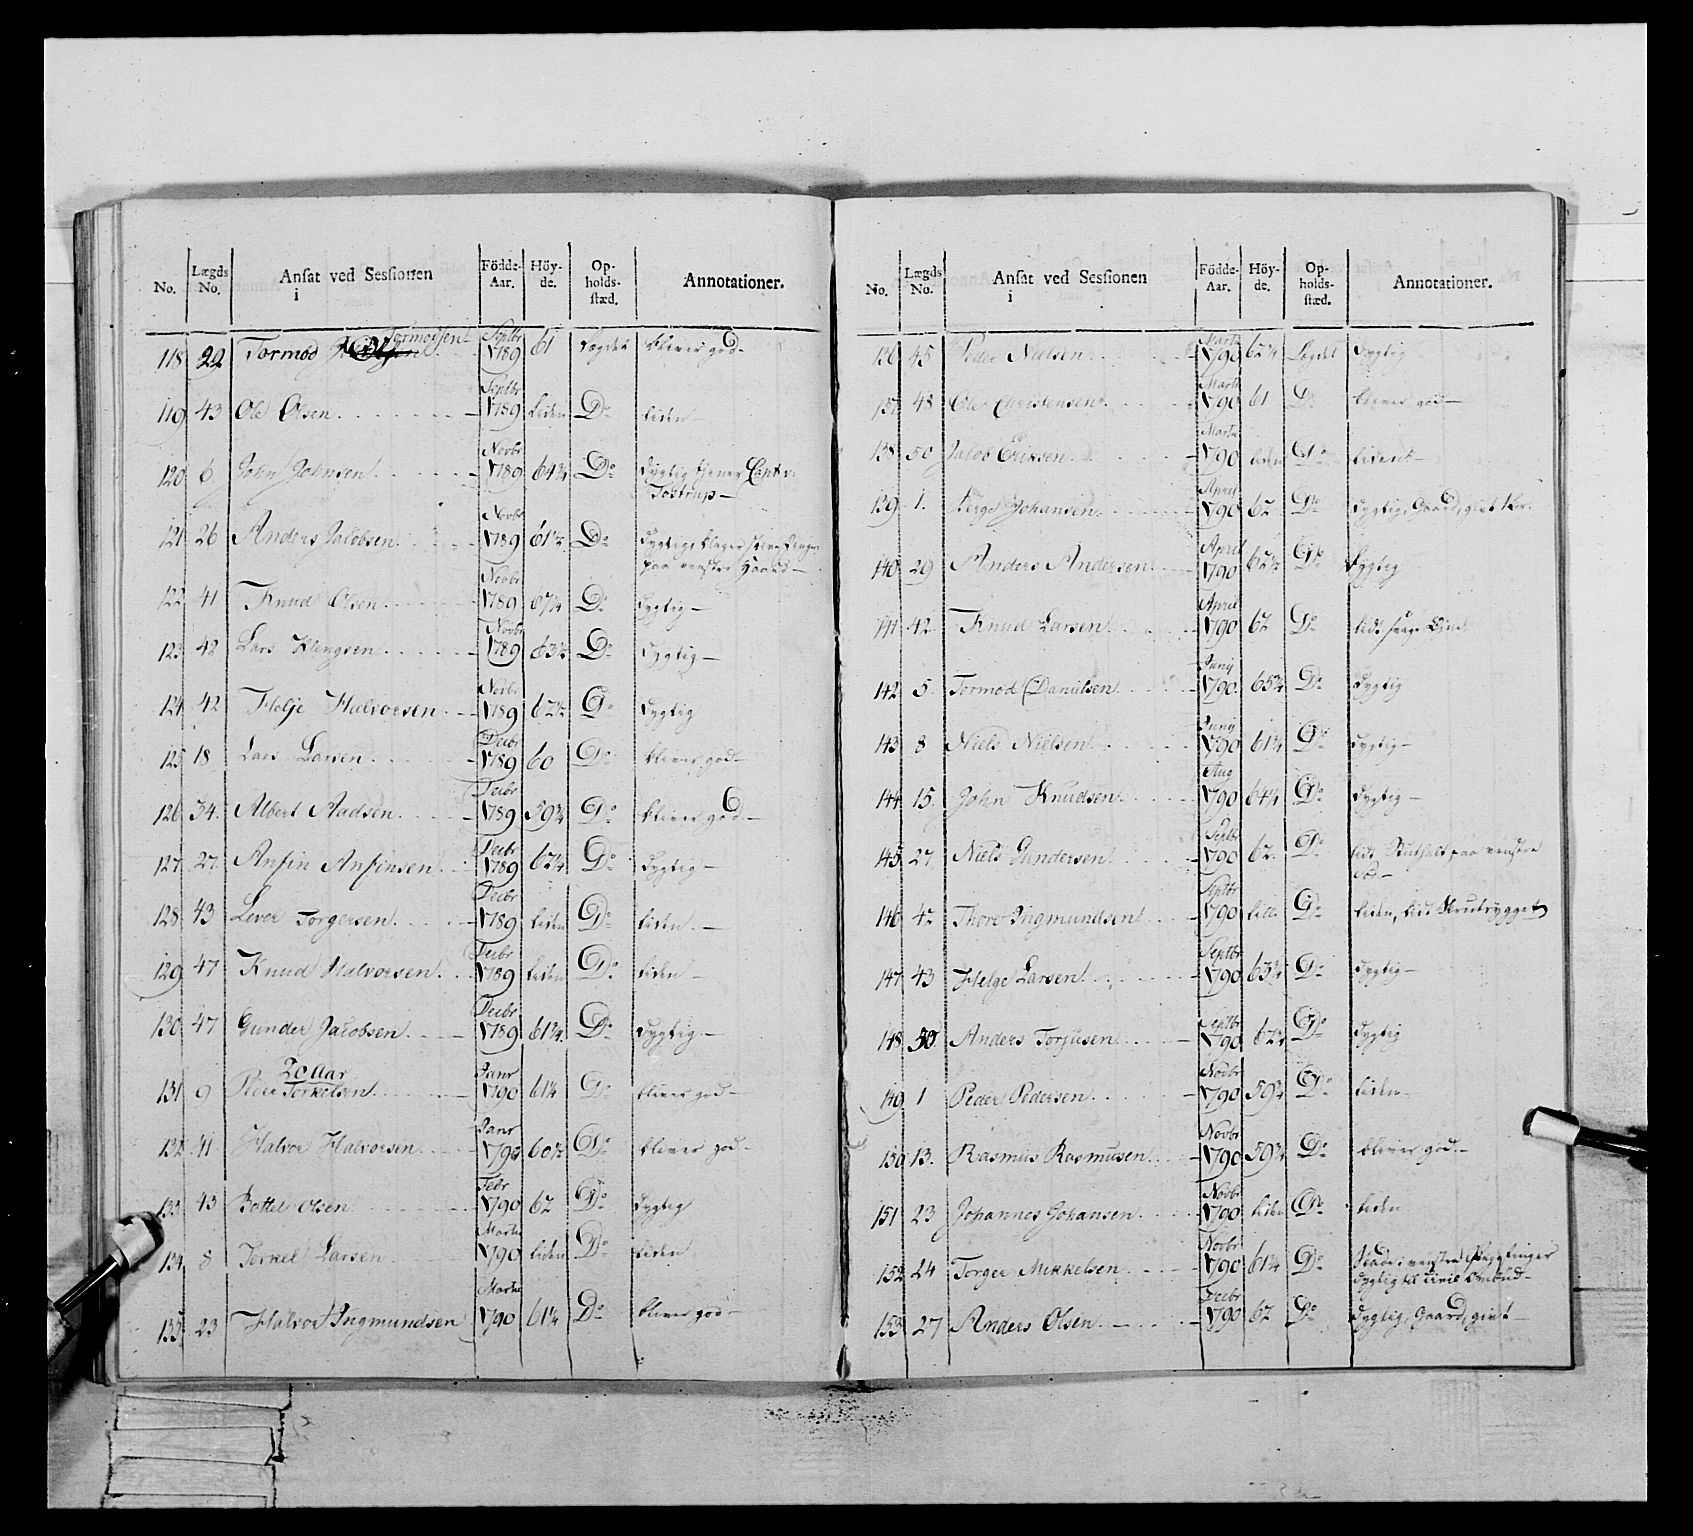 No. Lægds No. Ansat ved Sessionen i Födde-Aar. Höy-de. Op-holds-stæd. Annotationer.
118 29 Tormod Tormodsen Septbr 1789 61 Lægdet bliver god
119 43 Ole Olsen Septbr 1789 liden Do liden
120 6 John Johnsen Novbr 1789 64¾ Do dygtig, tjener Capt v.
Tostrup
121 26 Anders Jacobsen Novbr 1789 61½ Do dygtig, klager
paa venstre Haand
122 41 Knud Olsen Novbr 1789 67¼ Do dygtig
123 42 Lars Klengsen Novbr 1789 63½ Do dygtig
124 42 Helje Halvorsen Novbr 1789 62½ Do dygtig
125 18 Lars Larsen Decbr 1789 60 Do bliver god
126 34 Albert Aadsen Decbr 1789 59¾ Do bliver god
127 27 Anfin Anfinsen Decbr 1789 62¼ Do dygtig
128 43 Lever Torgersen Decbr 1789 liden Do liden
129 47 Knud Halvorsen Decbr 1789 liden Do liden
130 47 Gunder Jacobsen Decbr 1789 61¾ Do dygtig
20 Aar
131 9 Peder Torkelsen Janr 1790 61¼ Do bliver god
132 41 Halvor Halvorsen Janr 1790 60½ Do bliver god
133 43 Bottel Olsen Febr 1790 62 Do dygtig
134 8 Torkel Larsen Marti 1790 liden Do liden
135 23 Halvor Ingmundsen Marti 1790 61¼ Do bliver god
No. Lægds No. Ansat ved Sessionen i Födde-Aar. Höy-de. Op-holds-stæd. Annotationer.
136 45 Peder Nielsen Marti 1790 62¼ Lægdet dygtig
137 48 Ole Christensen Marti 1790 61 Do bliver god
138 50 Jacob Eriksen Marti 1790 liden Do liden
139 1 Børge Johansen April 1790 62 Do dygtig, Gaard, givt
140 29 Anders Andersen April 1790 62½ Do dygtig
141 42 Knud Larsen April 1790 62 Do lidt svage Øine
142 5 Tormod Danielsen Junij 1790 65¾ Do dygtig
143 8 Niels Nielsen Junij 1790 61¼ Do dygtig
144 15 John Knudsen Aug 1790 64¼ Do dygtig
145 27 Niels Gundersen Septbr 1790 62 Do lidt paa venstre
Fod
146 42 Thore Ingmundsen Septbr 1790 lide Do liden, lidt Krutrygget
147 43 Helge Larsen Septbr 1790 63¼ Do dygtig
148 50 Anders Torjusen Septbr 1790 62¼ Do dygtig
149 1 Peder Pedersen Novbr 1790 59¾ Do liden
150 13 Rasmus Rasmusen Novbr 1790 59¾ Do bliver god
151 23 Johannes Johansen Novbr 1790 liden Do liden
152 24 Torger Mikkelsen Novbr 1790 61¼ Do Skade i venstre Pegefinger
dygtig til civil Ombud
153 27 Anders Olsen Decbr 1790 62 Do dygtig, Gaard, givt